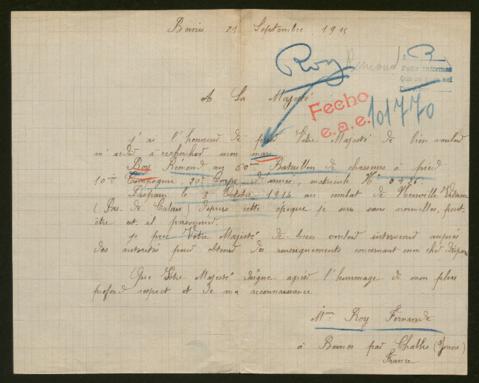 21 Septembre 1915
Roy Remond
R
Fecho
e.a.e.
101770
A Sa Majesté
J'ai l'honneur de Votre Majesté de bien vouloir
m'aider à rechercher mon mari
Roy Remond au 60me Bataillon de chasseurs à pied
10me Compagnie d'armée, matricule N°
Disparu 3 Octobre 1914 au combat de
(Pas de Calais) depuis cette époque je suis sans nouvelles, peut
être est il prisonnier.
Je prie Votre Majesté de bien vouloir intervenir auprès
des autorités pour obtenir des renseignements concernant mon cher disparu
Que Votre Majesté daigne agréer l'hommage de mon plus
profond respect et de ma reconnaissance
Mme Roy Fernande
à par (Yonne)
France